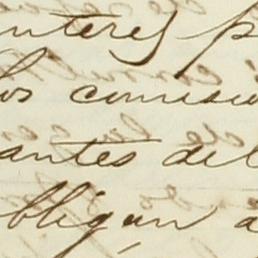 interes p
los comisio
antes del
bligan a